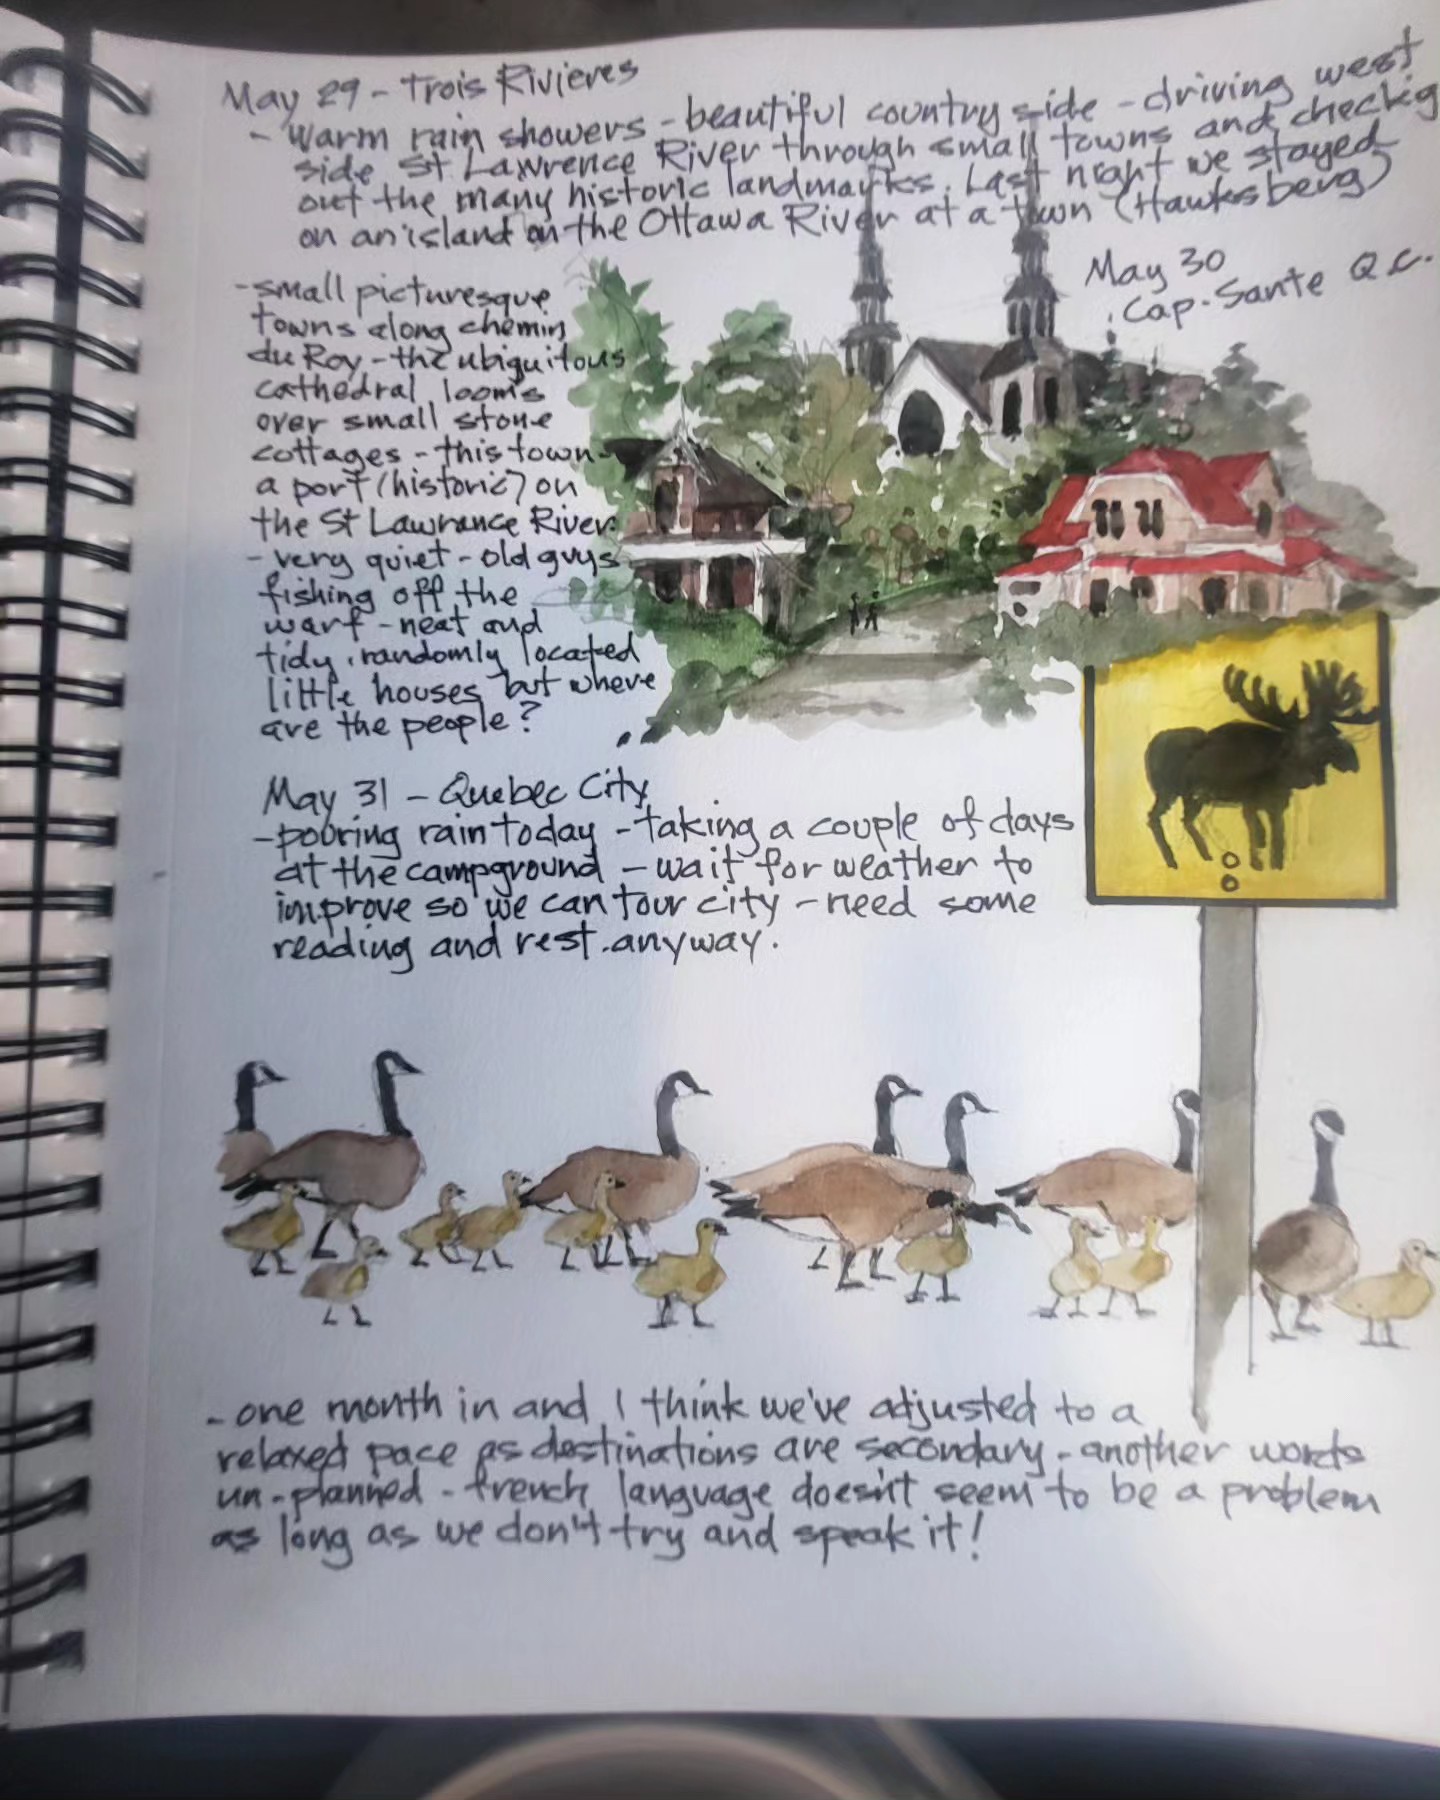 May 29 - Trois Rivieres
- warm rain showers - beautiful country side - driving west
side St Lawrence River through small towns and checkig
out the many historic landmarks. Last night we stayed
on an island on the Ottawa River at a town (Hawksberg)
May 30
Cap-Sante Q.C.
- small picturesque
towns along chemin
du Roy - the ubiquitous
cathedral looms
over small stone
cottages - this town -
a port (historic) on
the St Lawrance River
- very quiet - old guys
fishing off the
warf - neat and
tidy, randomly located
little houses but where
are the people?
May 31 - Quebec City
- pouring rain today - taking a couple of days
at the campground - wait for weather to
improve so we can tour city - need some
reading and rest. anyway.
- one month in and I think we've adjusted to a
relaxed pace as destinations are secondary - another words
un-planned - french language doesn't seem to be a problem
as long as we don't try and speak it!